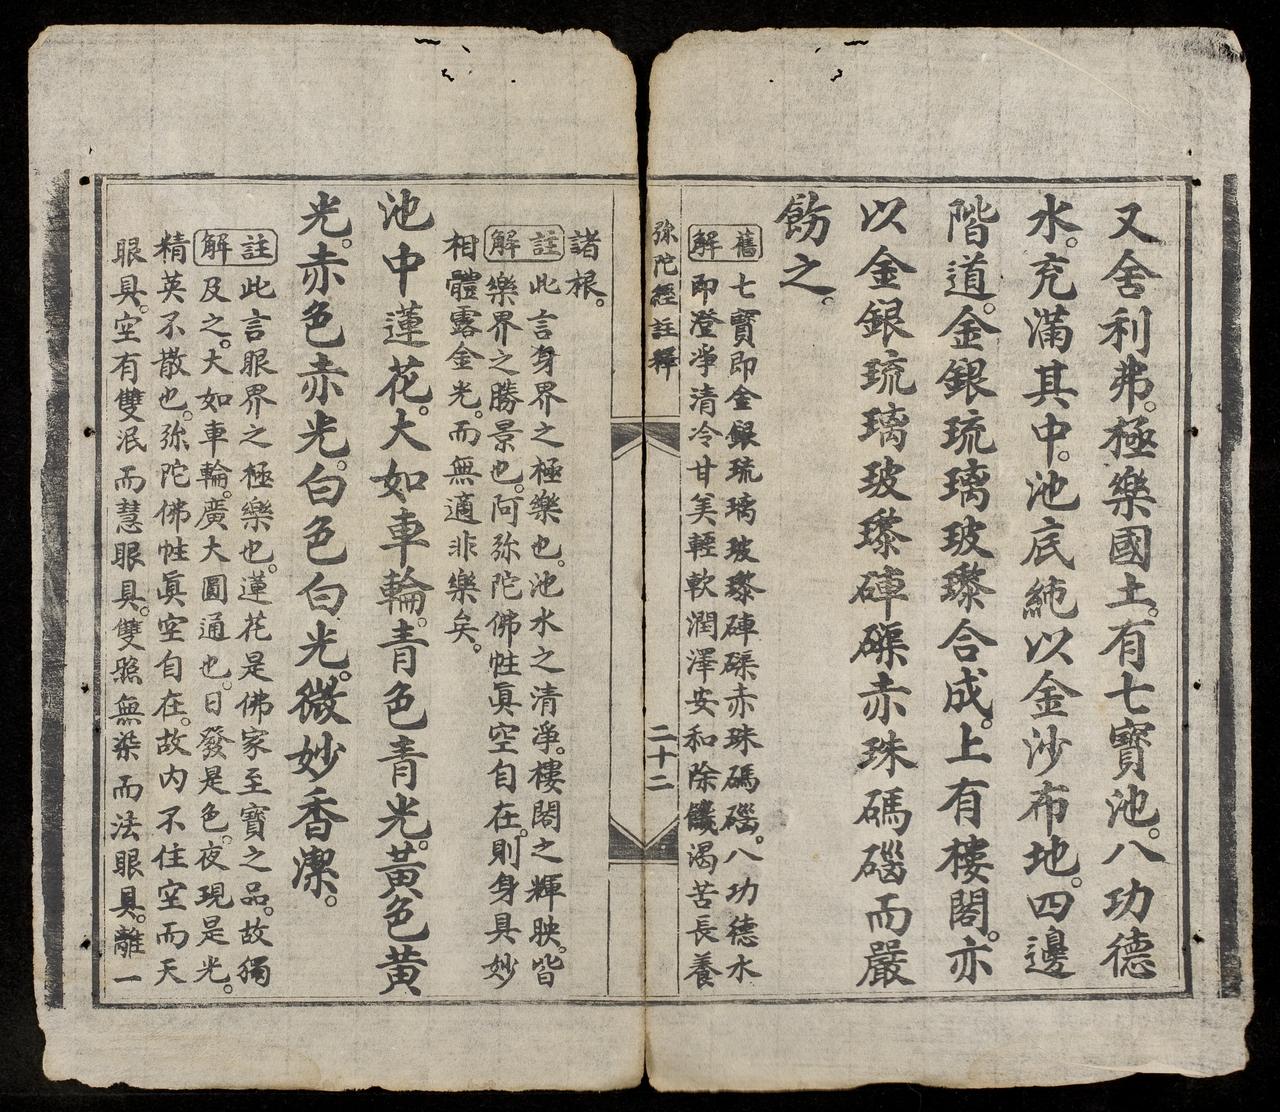 又舍利弗。極樂國土。有七寶池。八功德
水。充滿其中。池底純以金沙布地。四邊
階道。金銀琉璃玻瓈合成。上有樓閣。亦
以金銀琉璃玻瓈硨磲赤珠碼碯而嚴
飭之。
舊解 七寶即金銀琉璃玻瓈硨磲赤珠碼碯。八功德水
即澄淨清冷甘美輕軟潤澤安和除饑渴苦長養
弥陀經註釋
二十二
諸根。
註解 此言身界之極樂也。池水之清淨。樓閣之輝映。皆
樂界之勝景也。阿弥陀佛性眞空自在。則身具妙
相體露金光。而無適非樂矣。
池中蓮花。大如車輪。青色青光。黃色黃
光。赤色赤光。白色白光。微妙香潔。
註解 此言眼界之極樂也。蓮花是佛家至寶之品。故獨
及之。大如車輪。廣大圓通也。日發是色。夜現是光。
精英不散也。弥陀佛性眞空自在。故内不住空而天
眼具。空有雙泯而慧眼具。雙照無染而法眼具。離一